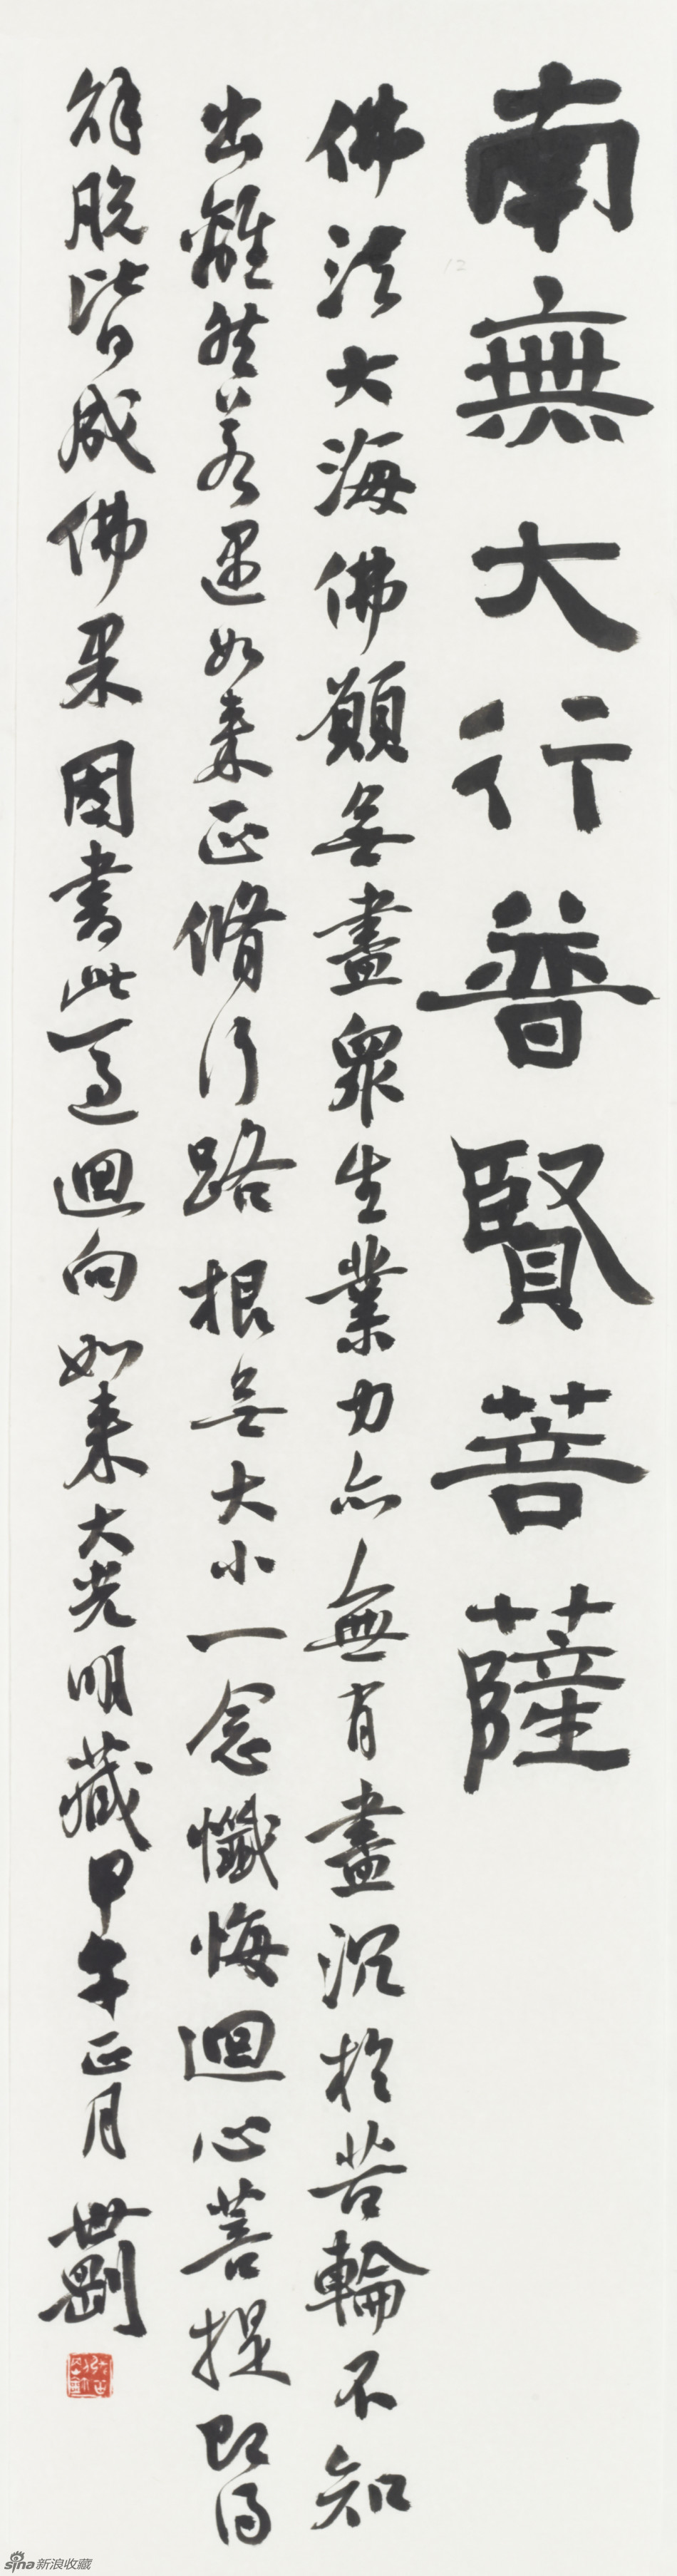 南無大行普賢菩薩
佛法大海佛願無盡眾生業力亦無有盡沉於苦輪不知
出離然若遇如來正脩行路根無大小一念懺悔迴心菩提即得
解脫皆成佛果因書此一過迴向如來大光明藏甲午正月世劉
sina新浪收藏